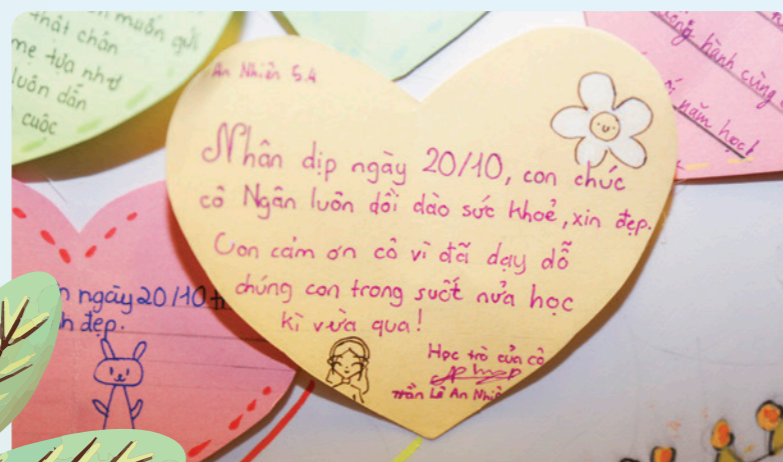 muốn gửi
thật chân
mẹ tựa như
luôn dẫn
cuộc
An Nhiên 5.4
Nhân dịp ngày 20/10, con chúc
cô Ngân luôn dồi dào sức khoẻ, xin đẹp.
Con cảm ơn cô vì đã dạy dỗ
chúng con trong suốt nửa học
kì vừa qua!
Học trò của cô
Trần Lê An Nhiên
hành cùng
năm học!
ngày 20/10
đẹp.